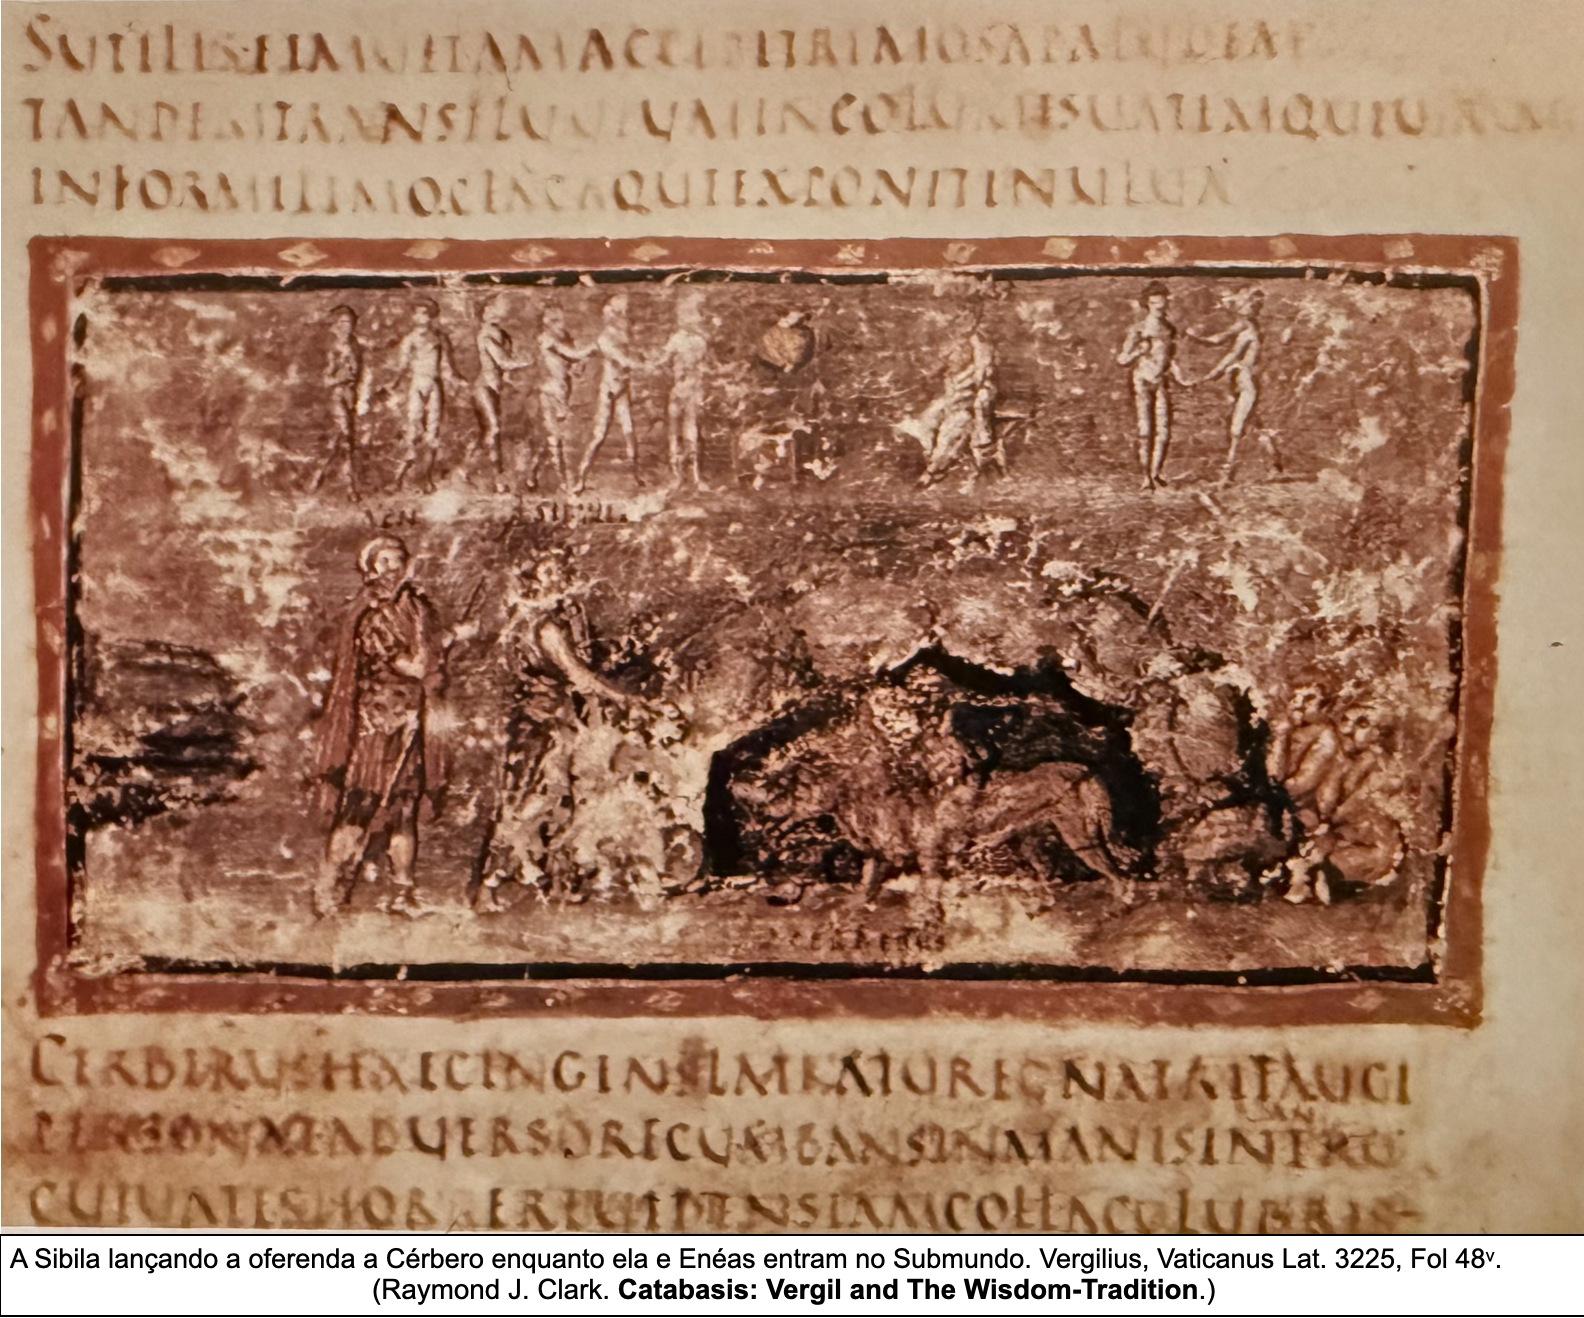 SUTILISETMULTAMACCEPITRIMOSAPALUDEM
TANDEMTRANSFLUUIUMINCOLUMESUATEMQUEUIRUMQ
INFORMILIMOGLAUCAQUEEXPONITINULUA
CERBERUS
CERBERUSHAECINGENSLATRATUREGNATRIFAUCI
PERSONATADUERSORECUBANSINMANISINANTRO
CUIUATESHORREREUIDENSIAMCOLLACOLUBRIS
A Sibila lançando a oferenda a Cérbero enquanto ela e Enéas entram no Submundo. Vergilius, Vaticanus Lat. 3225, Fol 48ᵛ.
(Raymond J. Clark. Catabasis: Vergil and The Wisdom-Tradition.)